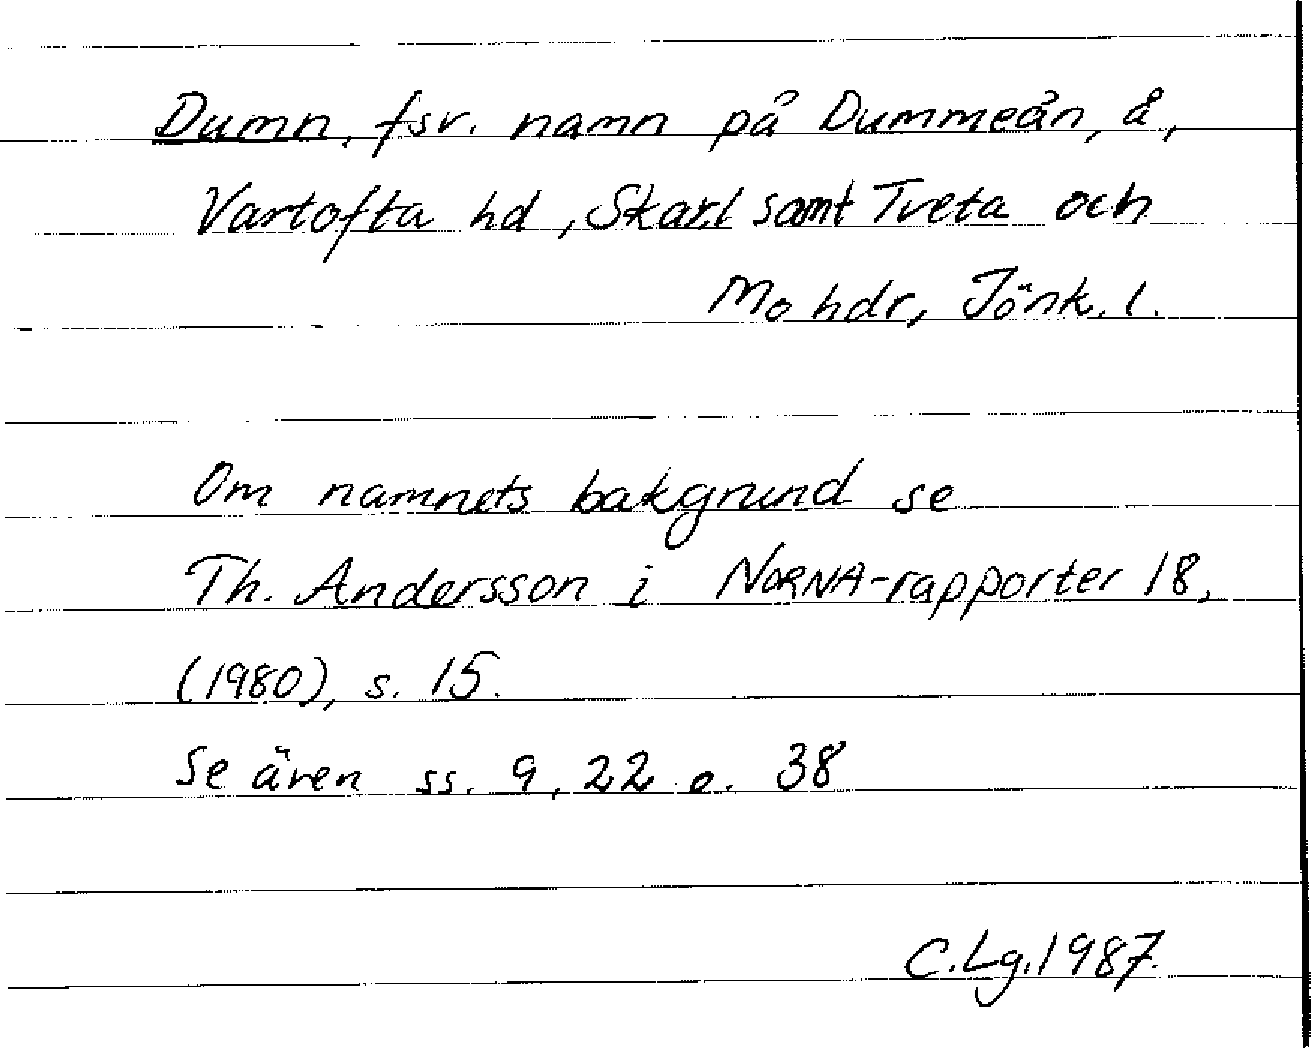 Dumn, fsv. namn på Dummeån, å,
Vartofta hd, Skar.l samt Tveta och
Mo hdr, Jönk. l.
Om namnets bakgrund se
Th. Andersson i NORNA-rapporter 18,
(1980), s. 15.
Se även ss. 9, 22 o. 38
C.Lg.1987.